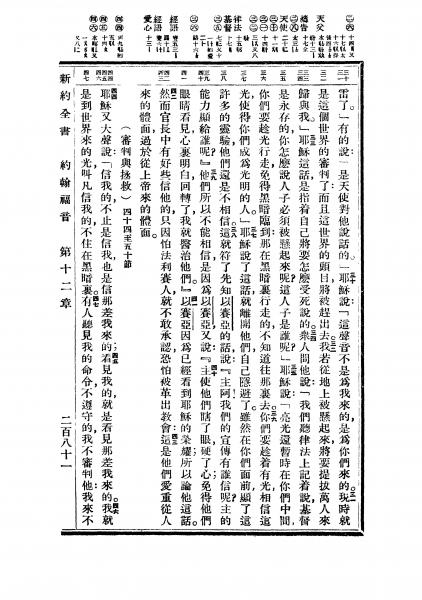 雷了。」有的說「是天使對他說話的」耶穌說「這聲音不是爲我來的是爲你們來的現時就
是這個世界的審判了而且這世界的頭目將被趕出去我若從地上被懸起來將要提拔萬人來
歸與我」耶穌這話是指着自己將要怎麼受死說的衆人問他說「我們聽律法上記着說基督
是永存的你怎麼說人子必須被懸起來呢這人子是誰呢」耶穌說「亮光還暫時在你們中間
你們要趁光行走免得黑暗臨到那在黑暗裏行走的不知道往那裏去你們要趁着有光相信這
光使得你們成爲光明的人」耶穌說了這話就離開他們自己隱避了雖然在你們面前顯了這
許多的靈驗他們還是不相信這就符了先知以賽亞的話說『主阿我們的宣傳有誰信呢主的
能力顯給誰呢』他們所以不能相信是因爲以賽亞又說『主使他們瞎了眼硬了心免得他們
眼睛看見心裏明白回轉了我就醫治他們』以賽亞因爲已經看到耶穌的榮耀所以論他這話
然而官長中有好些信他的只因怕法利賽人就不敢承認恐怕被革出教會這是他們愛重從人
來的體面過於從上帝來的體面
（審判與拯救）四十四至五十節
耶穌又大聲說「信我的不止是信我也是信那差我來的看見我的就是看見那差我來的我就
是到世界來的光叫凡信我的不住在黑暗裏有人聽見我的命令不遵守的我不審判他我來不
新約全書 約翰福音 第十二章 二百八十一